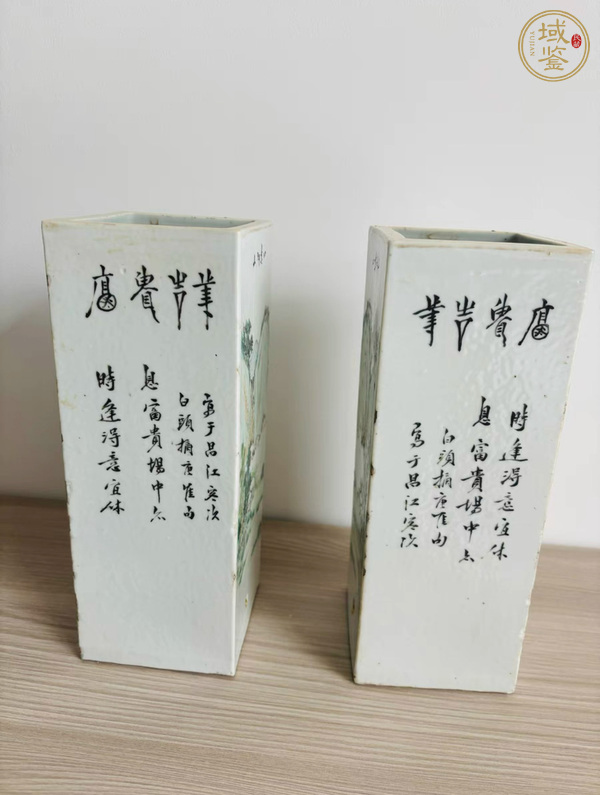 富貴吉羊
時逢得意宜休
息富貴場中亦
白頭摘句
寫于昌江客次
富貴吉羊
時逢得意宜休
息富貴場中亦
白頭摘句
寫于昌江客次
域鉴
YUJIAN